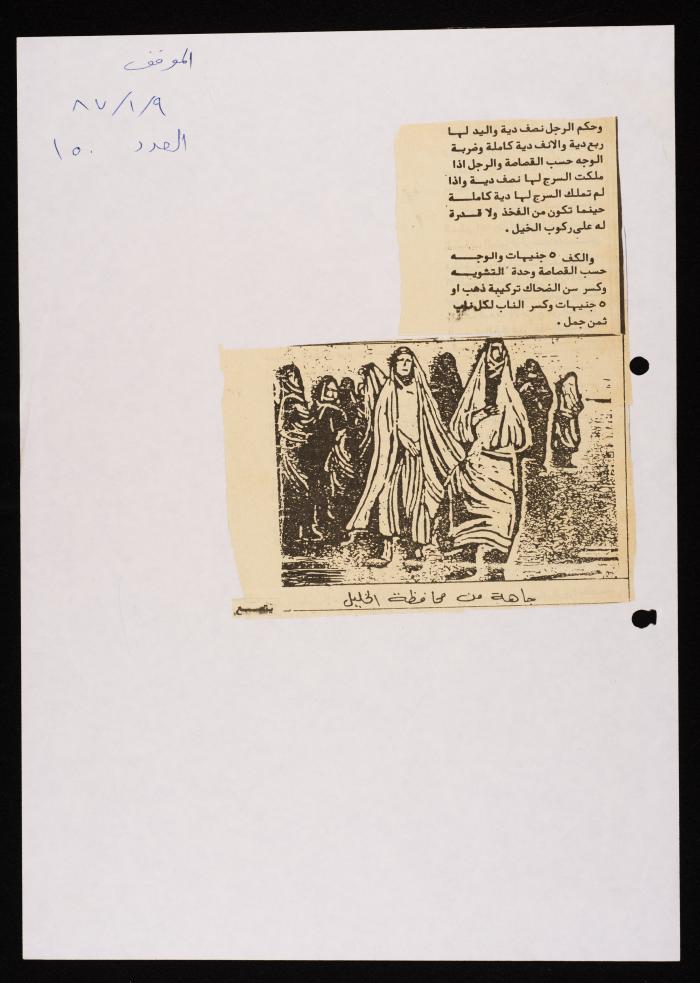 الموقف
٨٧/١/٩
العدد ١٥٠
وحكم الرجل نصف دية واليد لها
ربع دية والانف دية كاملة وضربة
الوجه حسب القصاصة والرجل اذا
ملكت السرج لها نصف دية واذا
لم تملك السرج لها دية كاملة
حينما تكون من الفخذ ولا قدرة
له على ركوب الخيل .
والكف ٥ جنيهات والوجه
حسب القصاصة وحدة التشويه
وكسر سن الضحاك تركيبة ذهب او
٥ جنيهات وكسر الناب لكل ناب
ثمن جمل .
جاهة من محافظة الخليل
يتبع